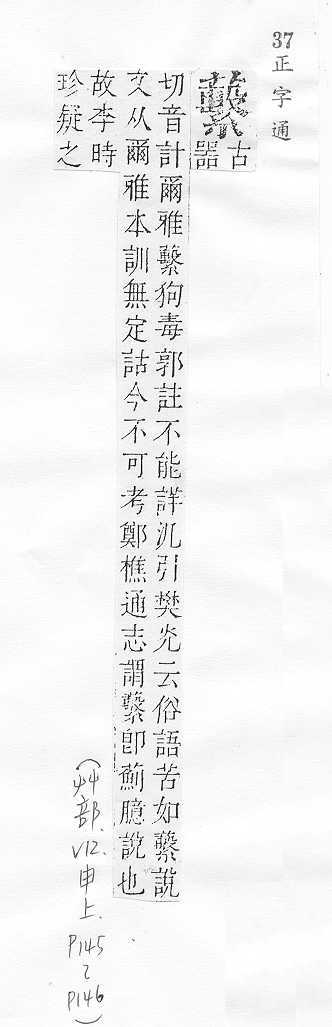 37正字通
蘻古器
切音計爾雅蘻狗毒郭註不能詳引樊光云俗語苦如蘻說
文从爾雅本訓無定詁今不可考鄭樵通志謂蘻卽薊臆說也
故李時
珍疑之
(艸部.V12.申上.P145~P146)